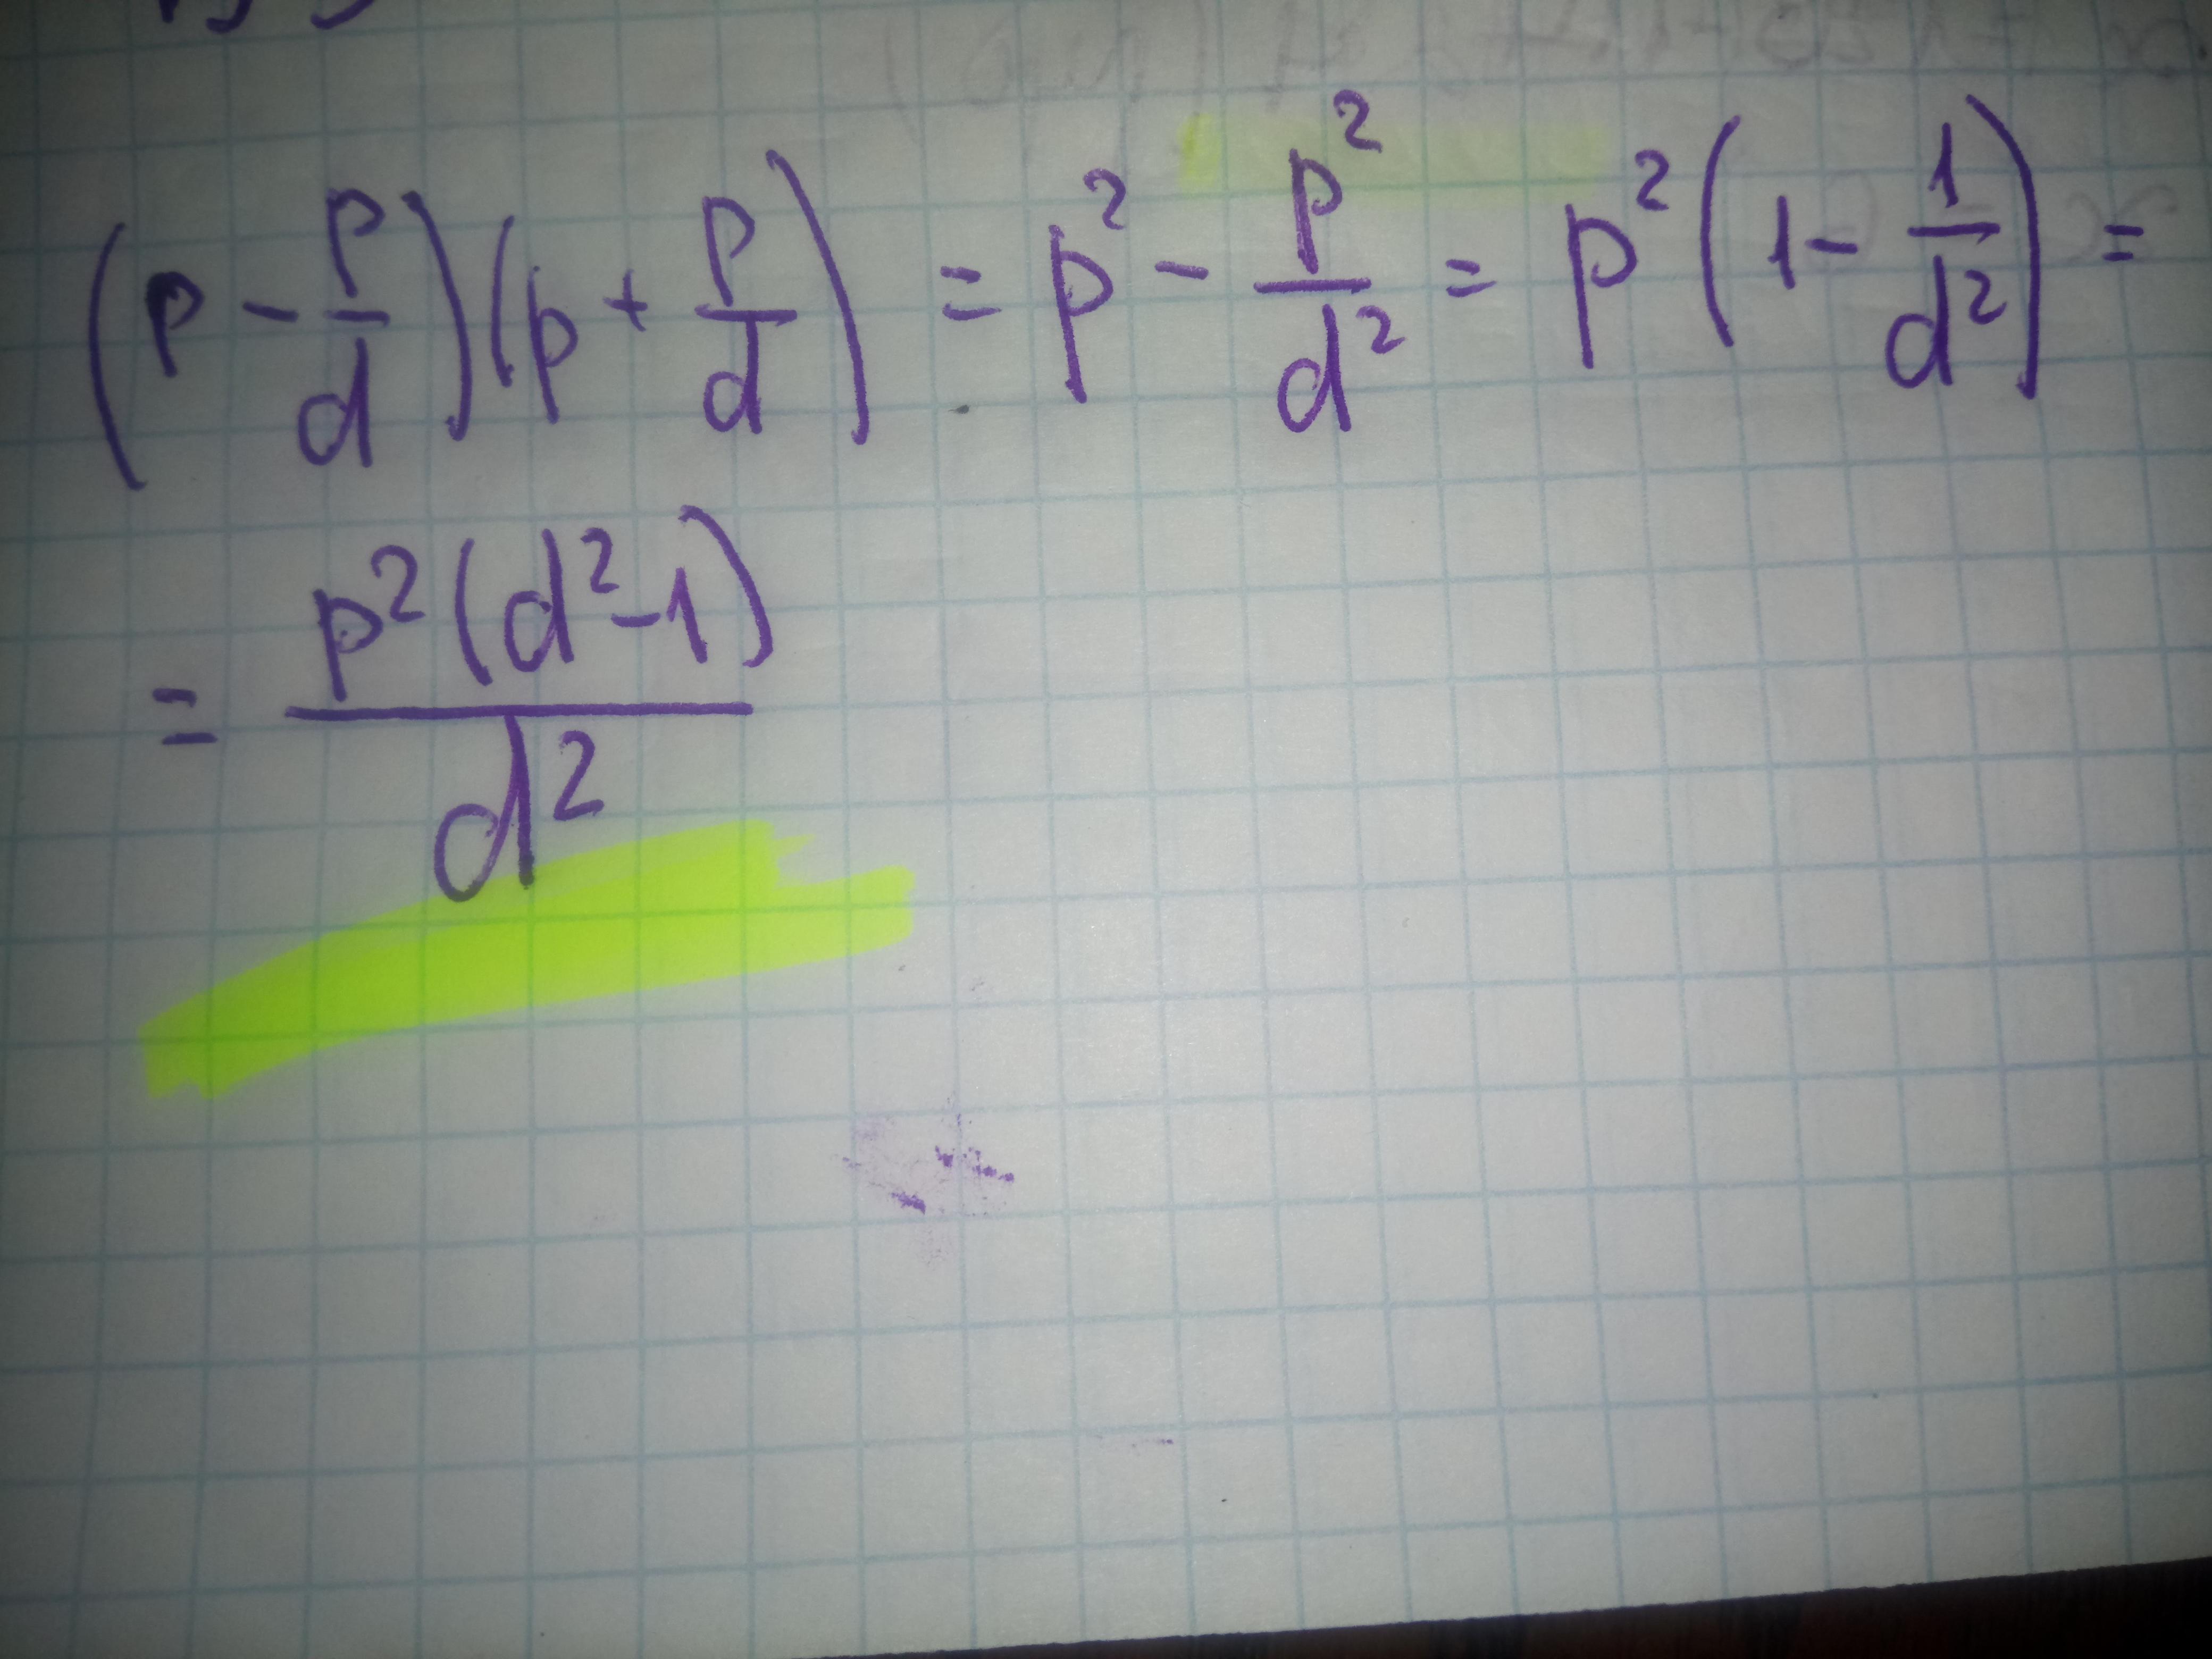 (p - p/d)(p + p/d) = p² - p²/d² = p²(1 - 1/d²) =
= p²(d²-1)/d²